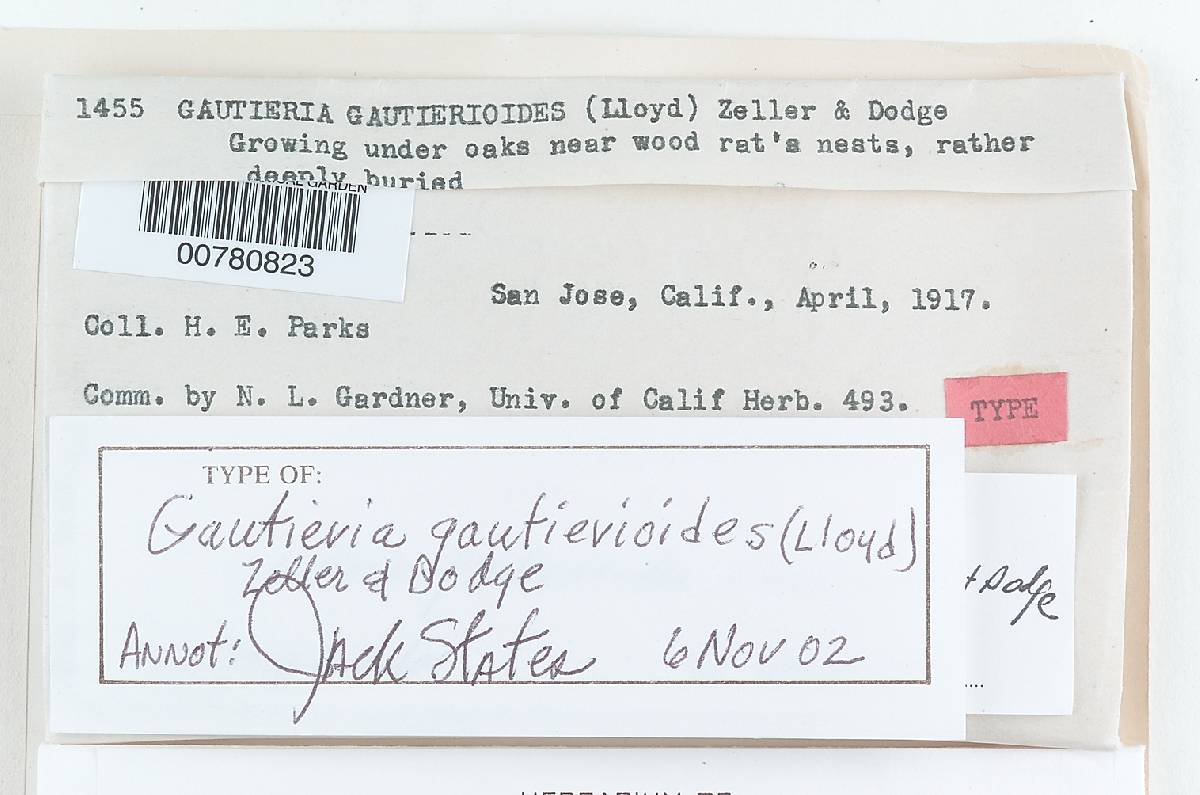 1455 GAUTIERIA GAUTIERIOIDES (Lloyd) Zeller & Dodge
Growing under oaks near wood rat's nests, rather
deeply buried
GARDEN
00780823
San Jose, Calif., April, 1917.
Coll. H. E. Parks
Comm. by N. L. Gardner, Univ. of Calif Herb. 493.
TYPE
TYPE OF:
Gautieria gautierioides (Lloyd)
Zeller & Dodge
+ Dodge
Annot: Jack States 6 Nov 02